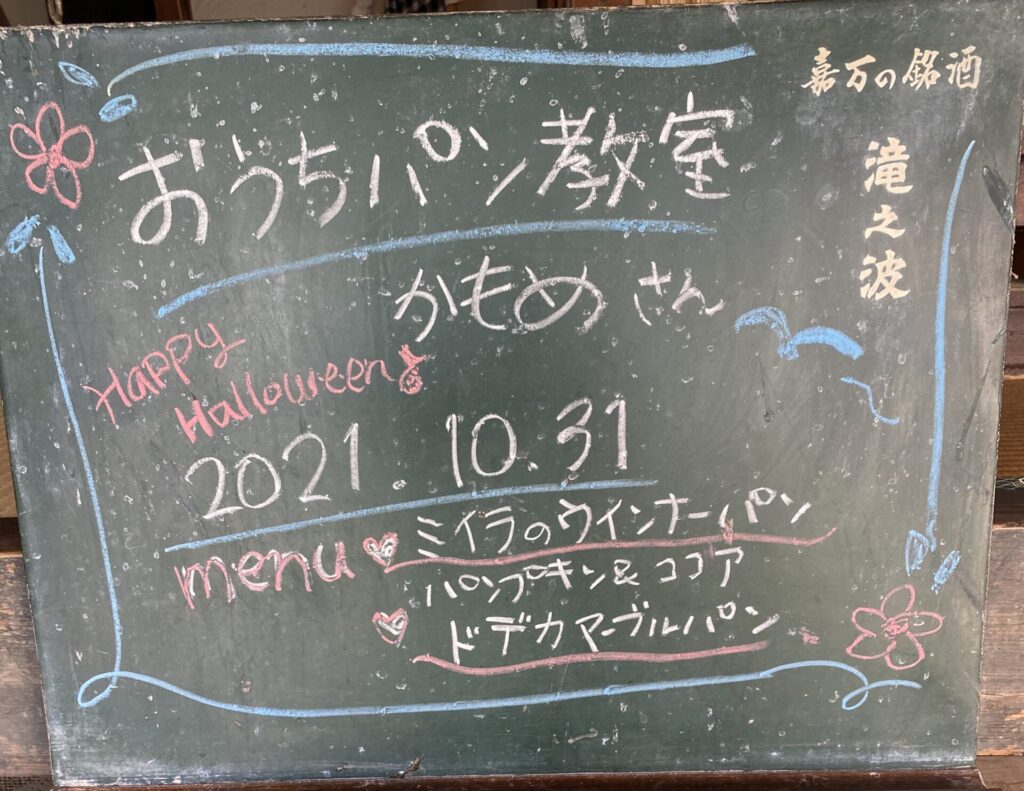 嘉万の銘酒
滝之波
おうちパン教室
かもめさん
Happy
Halloween
2021.10.31
menu
ミイラのウインナーパン
パンプキン&ココア
ドデカマーブルパン